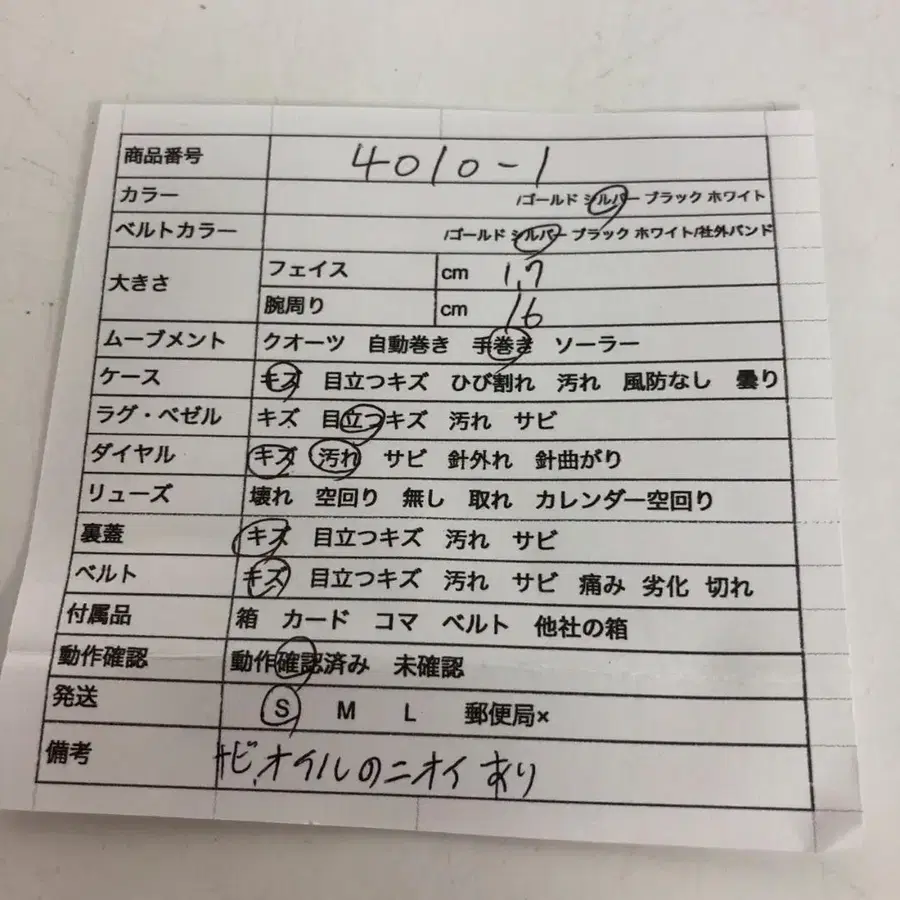 商品番号 4010-1
カラー /ゴールド シルバー ブラック ホワイト
ベルトカラー /ゴールド シルバー ブラック ホワイト/社外バンド
大きさ フェイス cm 1.7
腕周り cm 16
ムーブメント クオーツ 自動巻き 手巻き ソーラー
ケース キズ 目立つキズ ひび割れ 汚れ 風防なし 曇り
ラグ・ベゼル キズ 目立つキズ 汚れ サビ
ダイヤル キズ 汚れ サビ 針外れ 針曲がり
リューズ 壊れ 空回り 無し 取れ カレンダー空回り
裏蓋 キズ 目立つキズ 汚れ サビ
ベルト キズ 目立つキズ 汚れ サビ 痛み 劣化 切れ
付属品 箱 カード コマ ベルト 他社の箱
動作確認 動作確認済み 未確認
発送 S M L 郵便局×
備考 サビ、オイルのニオイあり